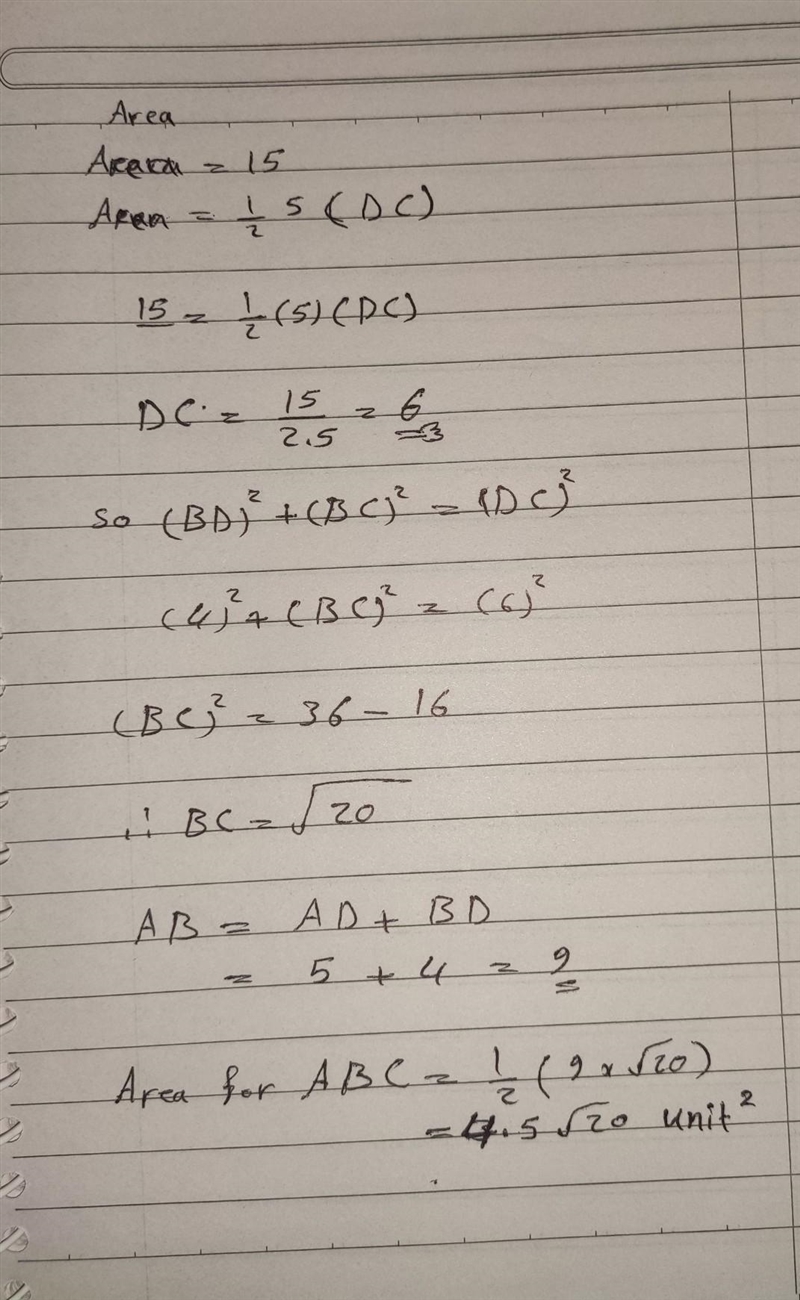 Area
Area = 15
Area = 1/2 5 (DC)
15 = 1/2 (5) (DC)
DC = 15/2.5 = 6
so (BD)² + (BC)² = (DC)²
(4)² + (BC)² = (6)²
(BC)² = 36 - 16
∴ BC = √20
AB = AD + BD
= 5 + 4 = 9
Area for ABC = 1/2 (9 x √20)
= 4.5 √20 unit²